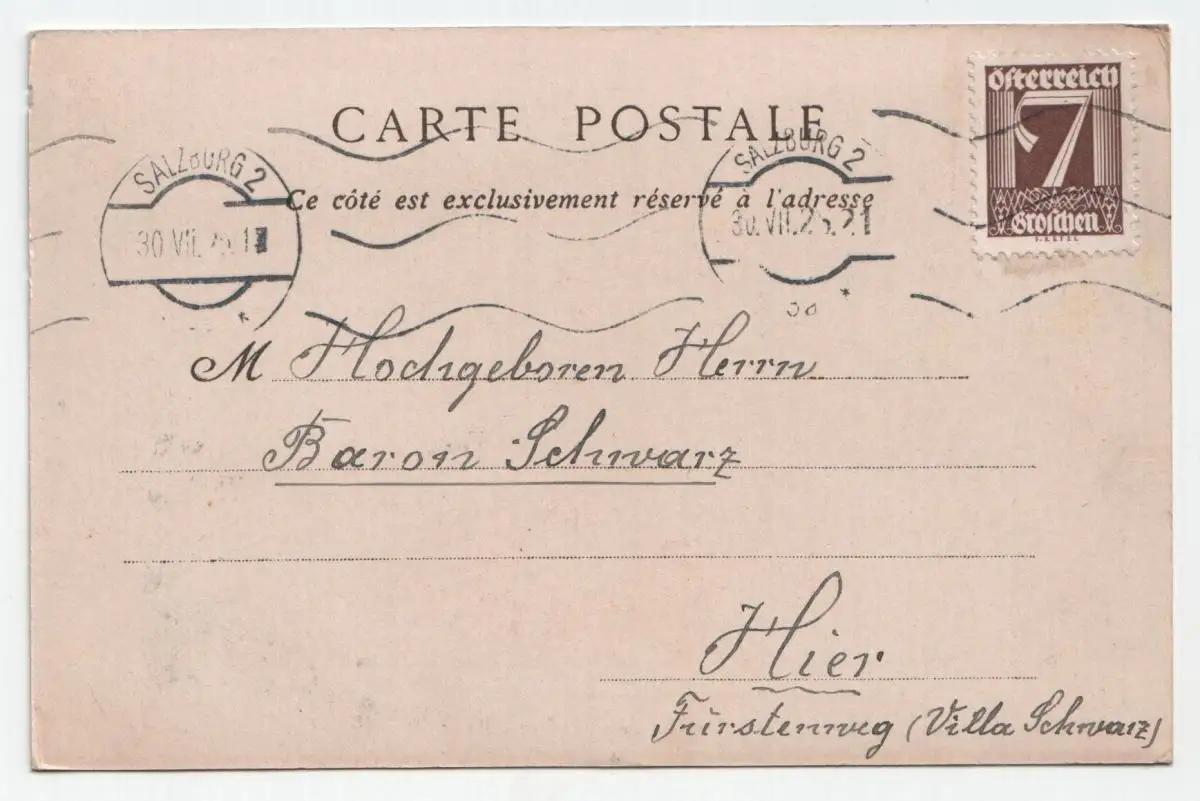 CARTE POSTALE
Ce côté est exclusivement réservé à l'adresse
Österreich
7
Groschen
SALZBURG 2
30 VII.
SALZBURG 2
30.VII.25.21
M Hochgeboren Herrn
Baron Schwarz
Hier
Fürstenweg (Villa Schwarz)